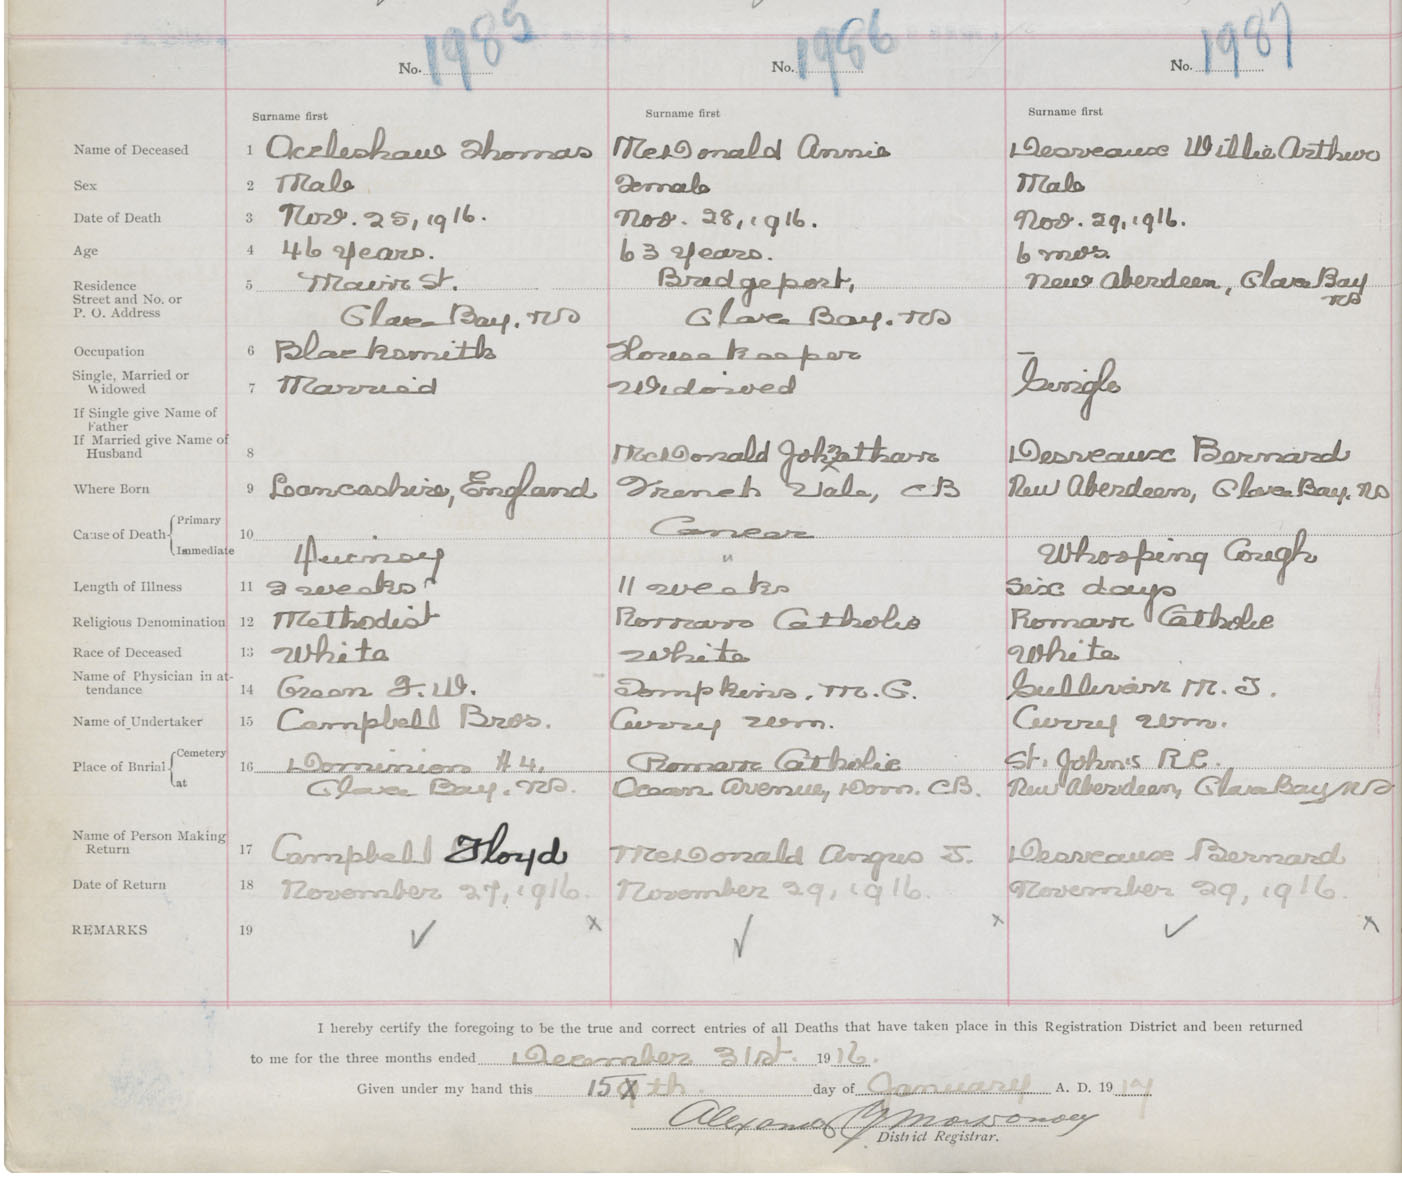 No. 1985 No. 1986 No. 1987
Surname first Surname first Surname first
Name of Deceased 1 Occleshaw Thomas McDonald Annie Desveaux Willie Arthur
Sex 2 Male Female Male
Date of Death 3 Nov. 25, 1916. Nov. 28, 1916. Nov. 29, 1916.
Age 4 46 years. 63 years. 6 mos.
Residence 5 Main St. Bridgeport, New Aberdeen, Glace Bay
Street and No. or NS
P. O. Address Glace Bay. NS Glace Bay. NS
Occupation 6 Blacksmith Housekeeper —
Single, Married or
Widowed 7 Married Widowed Single
If Single give Name of
Father
If Married give Name of
Husband 8 McDonald Johnathan Desveaux Bernard
Where Born 9 Lancashire, England French Vale, CB New Aberdeen, Glace Bay. NS
Cause of Death { Primary 10 Cancer
Immediate " Whooping Cough
Length of Illness 11 2 weeks 11 weeks six days
Religious Denomination 12 Methodist Roman Catholic Roman Catholic
Race of Deceased 13 White White White
Name of Physician in at-
tendance 14 Green F. W. Tompkins. M. G. Sullivan M. T.
Name of Undertaker 15 Campbell Bros. Curry Wm. Curry Wm.
Place of Burial { Cemetery 16 Dominion #4, Roman Catholic St. John's R.C.
at Glace Bay. NS. Ocean Avenue, Dom. CB. New Aberdeen, Glace Bay NS
Name of Person Making
Return 17 Campbell Floyd McDonald Angus J. Desveaux Bernard
Date of Return 18 November 27, 1916. November 29, 1916. November 29, 1916.
REMARKS 19 ✓ x ✓ x ✓ x
I hereby certify the foregoing to be the true and correct entries of all Deaths that have taken place in this Registration District and been returned
to me for the three months ended December 31st. 1916.
Given under my hand this 15th day of January A. D. 1917
District Registrar.